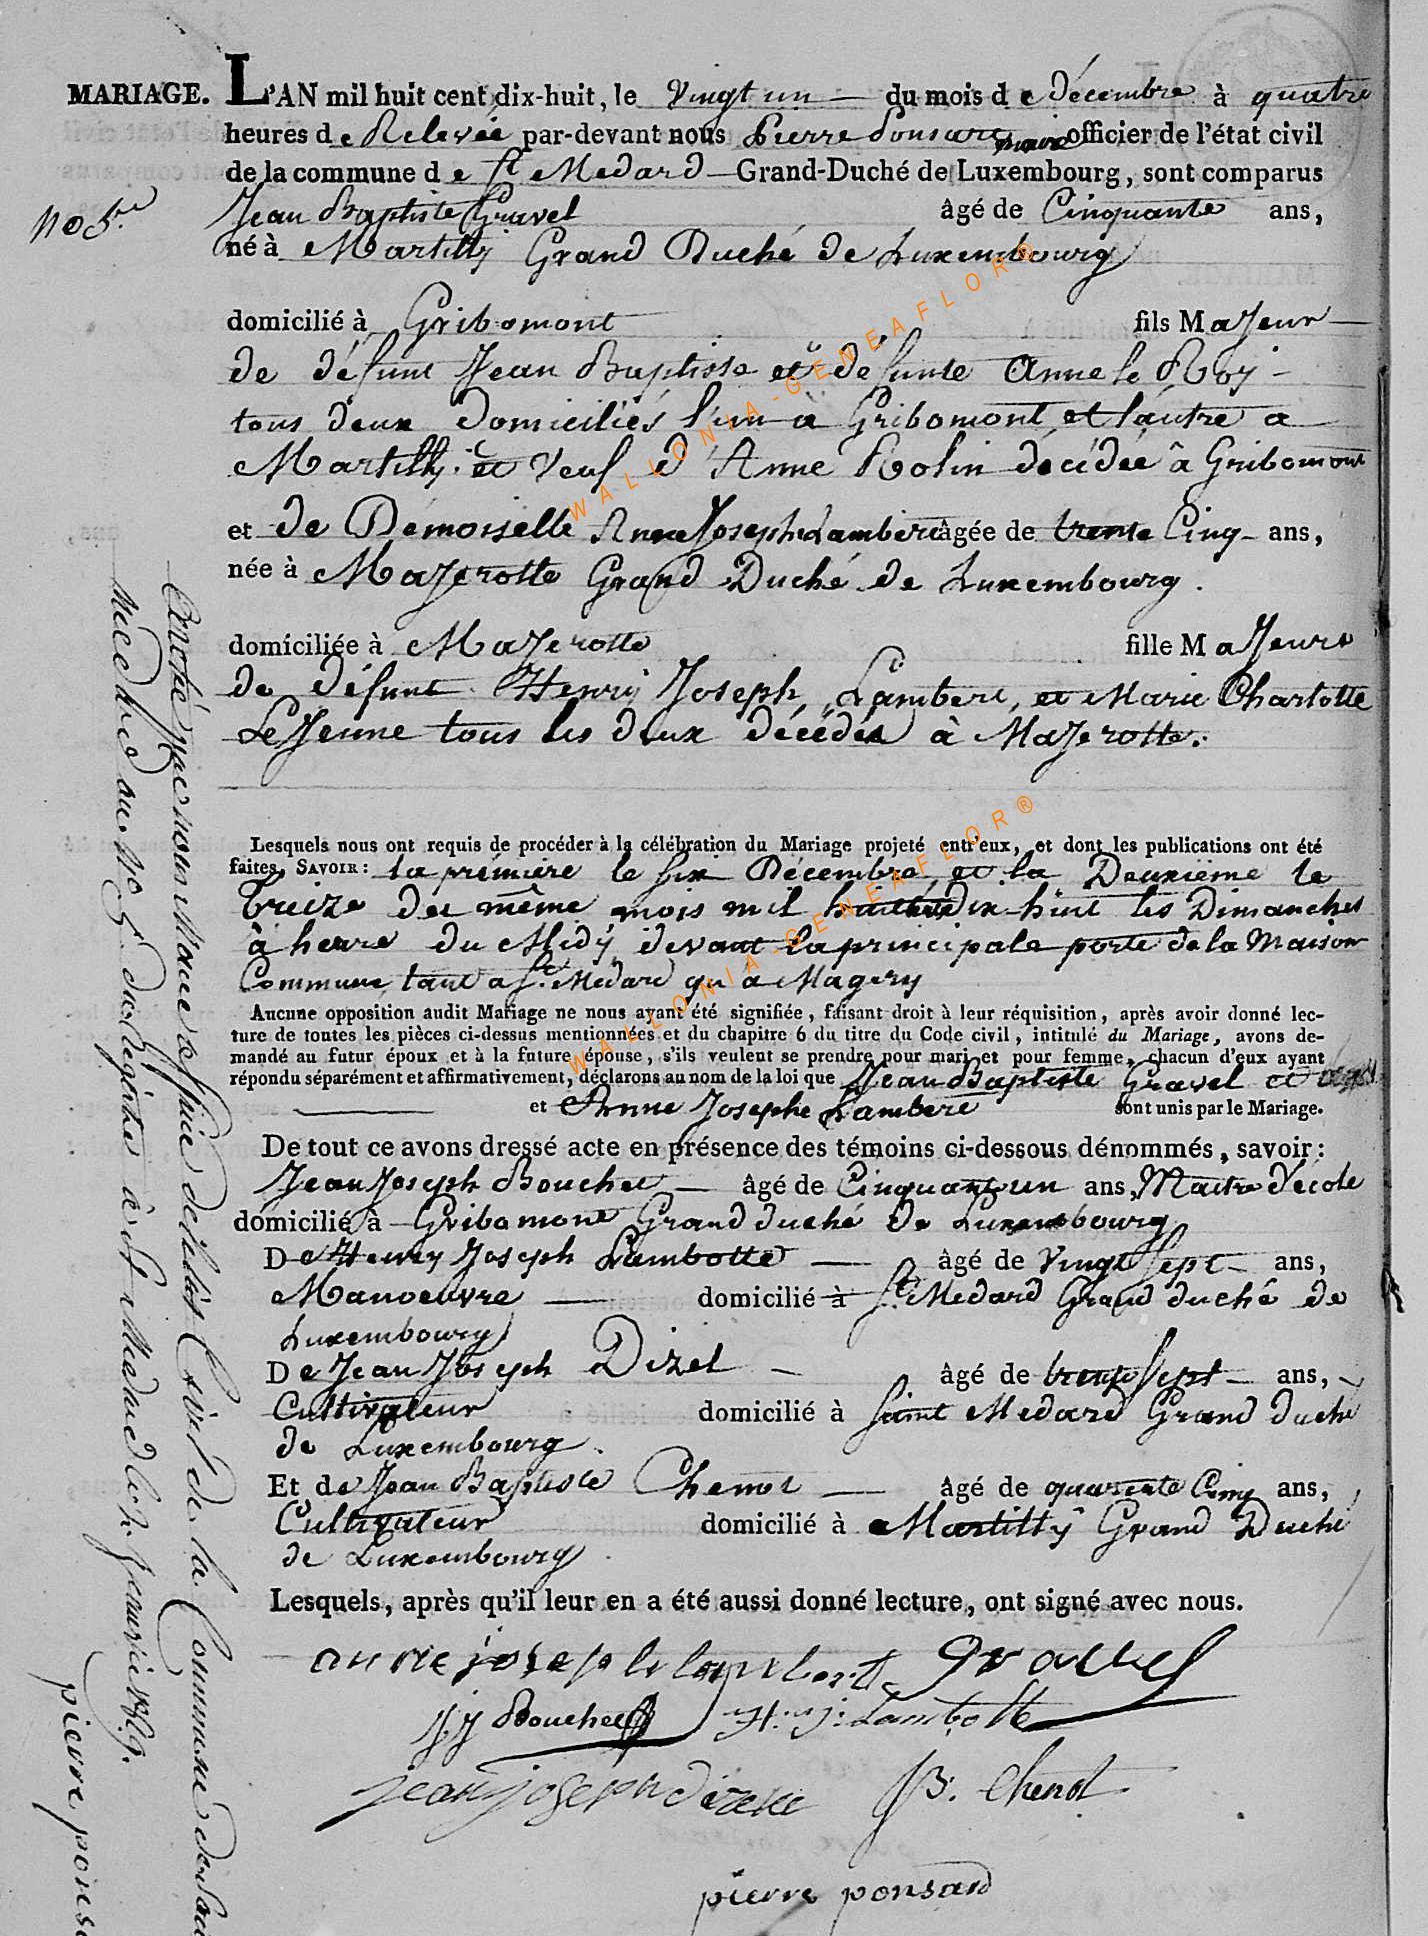 MARIAGE. L'AN mil huit cent dix-huit, le Vingt un du mois de Décembre à quatre
heures de Relevée par-devant nous Pierre Ponsard maire officier de l'état civil
de la commune de St Medard Grand-Duché de Luxembourg, sont comparus
No 5.
Jean Baptiste Gravel âgé de Cinquante ans,
né à Martilly Grand Duché de Luxembourg
domicilié à Gribomont fils Majeur
de défunt Jean Baptiste et défunte Anne le Roy
tous deux domiciliés l'un à Gribomont et l'autre a
Martilly. et Veuf d'Anne Rolin décédée à Gribomont
et de Démoiselle Anne Josephe Lambert âgée de trente Cinq ans,
née à Mazerotte Grand Duché de Luxembourg.
domiciliée à Mazerotte fille Majeure
de défunt Henry Joseph Lambert, et Marie Charlotte
LeJeune tous les deux décédés à Mazerotte.
Lesquels nous ont requis de procéder à la célébration du Mariage projeté entr'eux, et dont les publications ont été
faites, SAVOIR: la prémière le six Décembre, et la Deuxième le
treize du même mois mil huit cent dix huit les Dimanches
à heure du Midy devant la principale porte de la Maison
Commune tant a St. Médard qu'a Magery
Aucune opposition audit Mariage ne nous ayant été signifiée, faisant droit à leur réquisition, après avoir donné lec-
ture de toutes les pièces ci-dessus mentionnées et du chapitre 6 du titre du Code civil, intitulé du Mariage, avons de-
mandé au futur époux et à la future épouse, s'ils veulent se prendre pour mari et pour femme, chacun d'eux ayant
répondu séparément et affirmativement, déclarons au nom de la loi que Jean Baptiste Gravel et
et Anne Josephe Lambert sont unis par le Mariage.
De tout ce avons dressé acte en présence des témoins ci-dessous dénommés, savoir:
Jean Joseph Bouchet âgé de Cinquant un ans, Maitre d'école
domicilié à Gribomont Grand duché de Luxembourg
De Henry Joseph Lambotte âgé de Vingt Sept ans,
Manoeuvre domicilié à St Medard Grand duché de
Luxembourg
De Jean Joseph Dizel âgé de trente Sept ans,
Cultivateur domicilié à Saint Medard Grand duché
de Luxembourg.
Et de Jean Baptiste Chenot âgé de quarante Cinq ans,
Cultivateur domicilié à Martilly Grand Duché
de Luxembourg.
Lesquels, après qu'il leur en a été aussi donné lecture, ont signé avec nous.
anne josephe lambert Gravel
JJ Bouchet H. J. Lambotte
jean joseph dizele JB. Chenot
pierre ponsard
Certifié par nous Maire officier de l'état Civil de la Commune de
Medard au No 5 du Régistre à St Medard le janvier 1819.
pierre ponsa
WALLONIA-GENEAFLOR®
WALLONIA-GENEAFLOR®